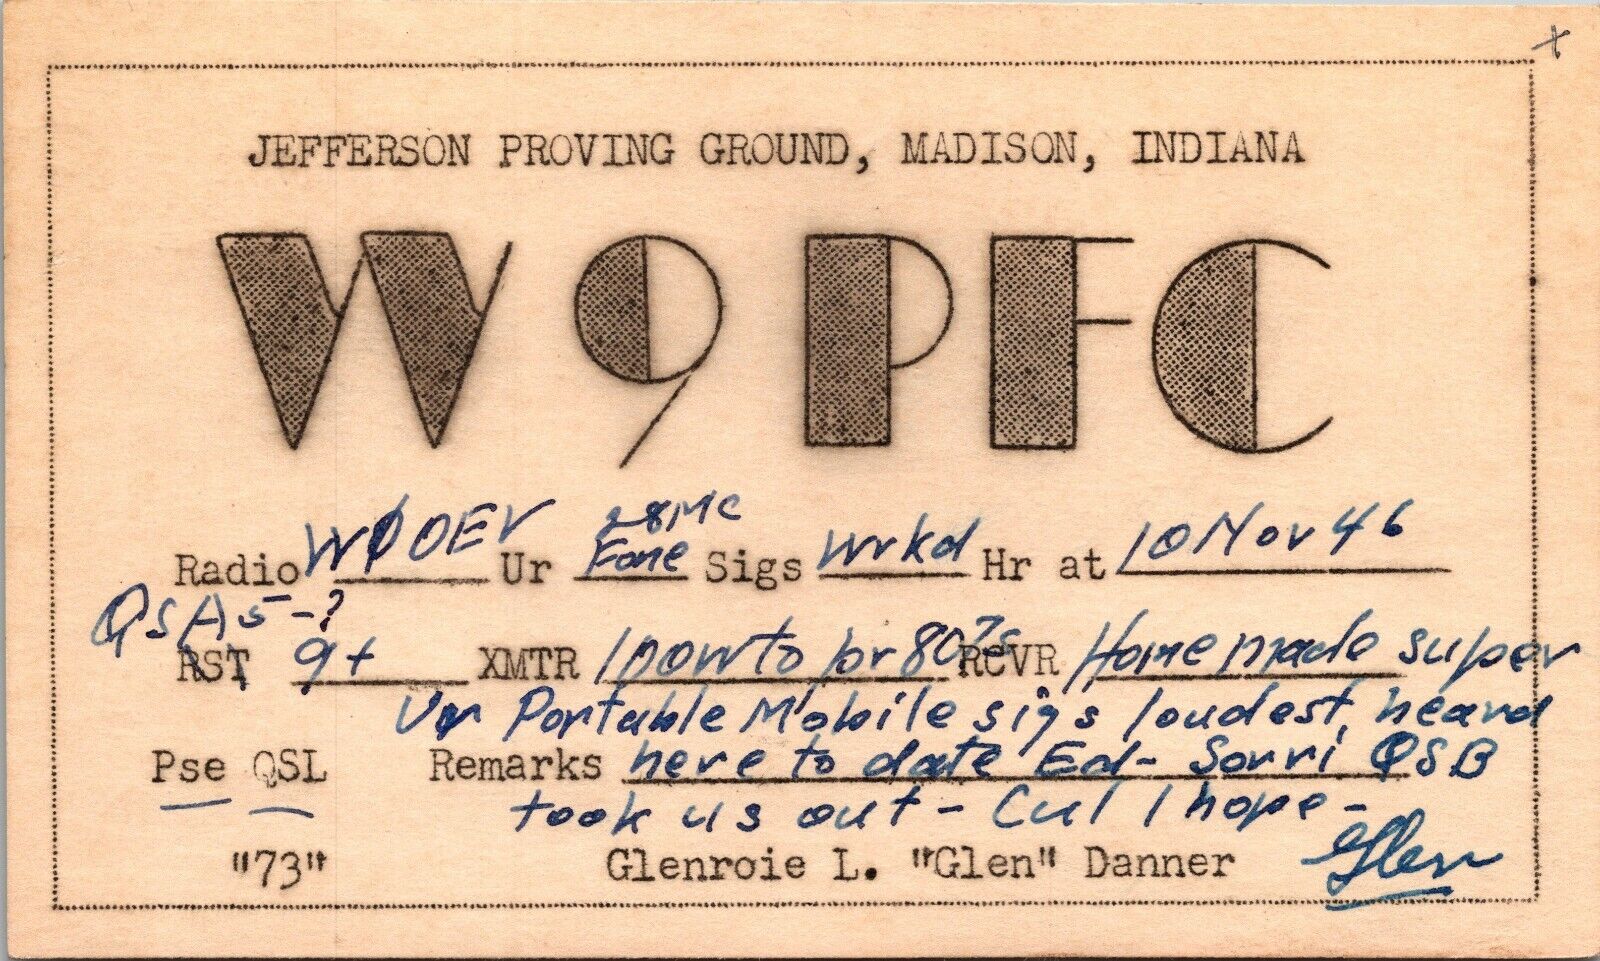 JEFFERSON PROVING GROUND, MADISON, INDIANA
W9PFC
28MC
Radio WØOEV Ur Fone Sigs Wrkd Hr at 10 Nov 46
QSA5-?
RST 9+ XMTR 100w to pr 807s RCVR Homemade super
Ur Portable Mobile sigs loudest heard
Pse QSL Remarks here to date Ed- Sorri QSB
took us out - Cul I hope -
"73" Glenroie L. "Glen" Danner Glen